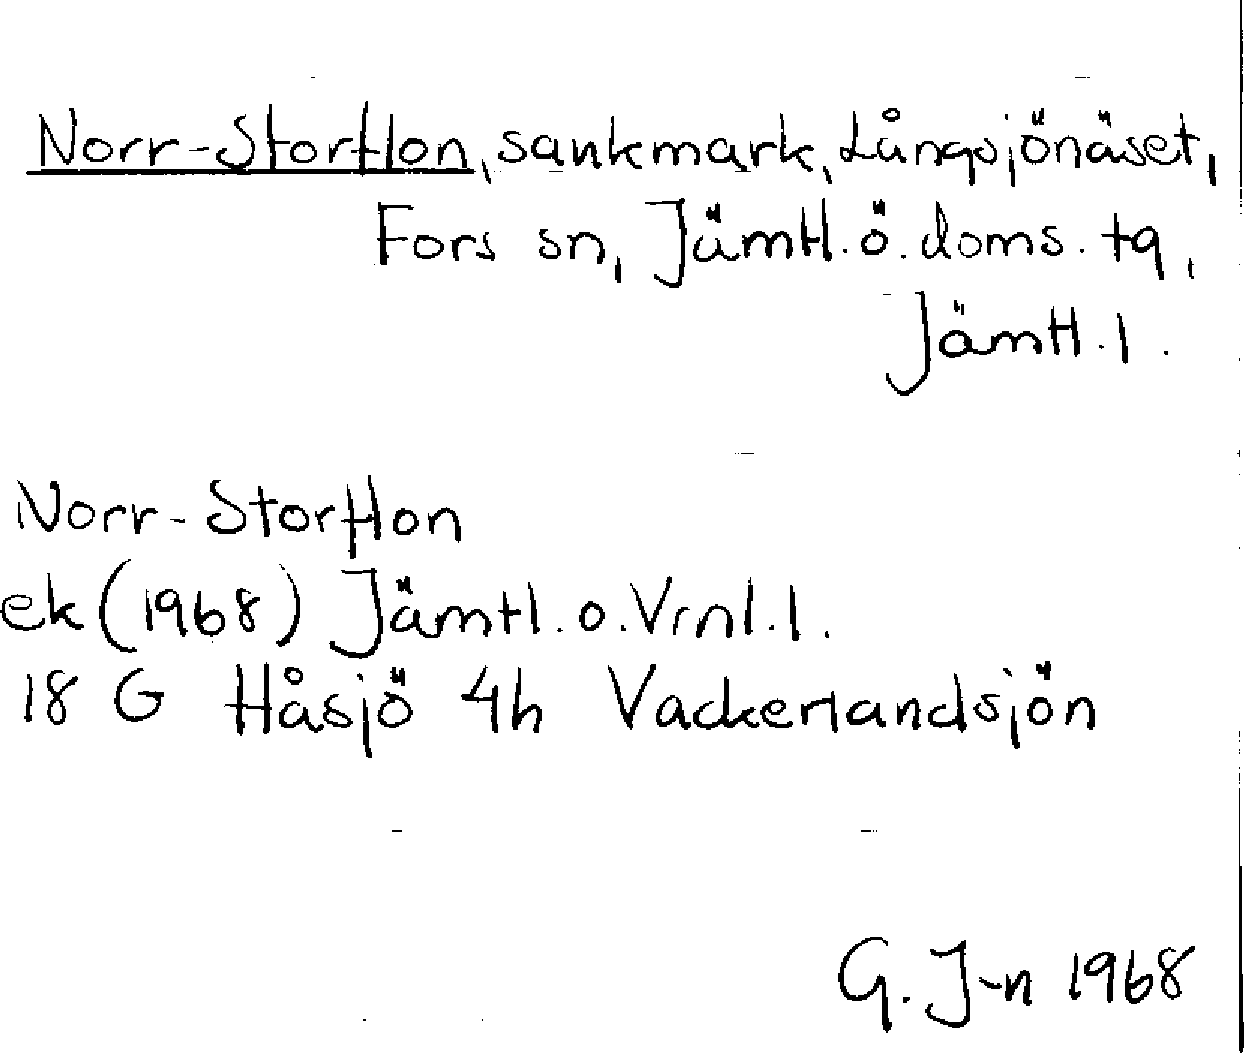 Norr-Storflon, sankmark, Långsjönäset,
Fors sn, Jämtl. ö. doms. tg,
Jämtl. l.
Norr-Storflon
ek (1968) Jämtl. o. Vrnl. l.
18 G Håsjö 4h Vackerlandsjön
G. J-n 1968